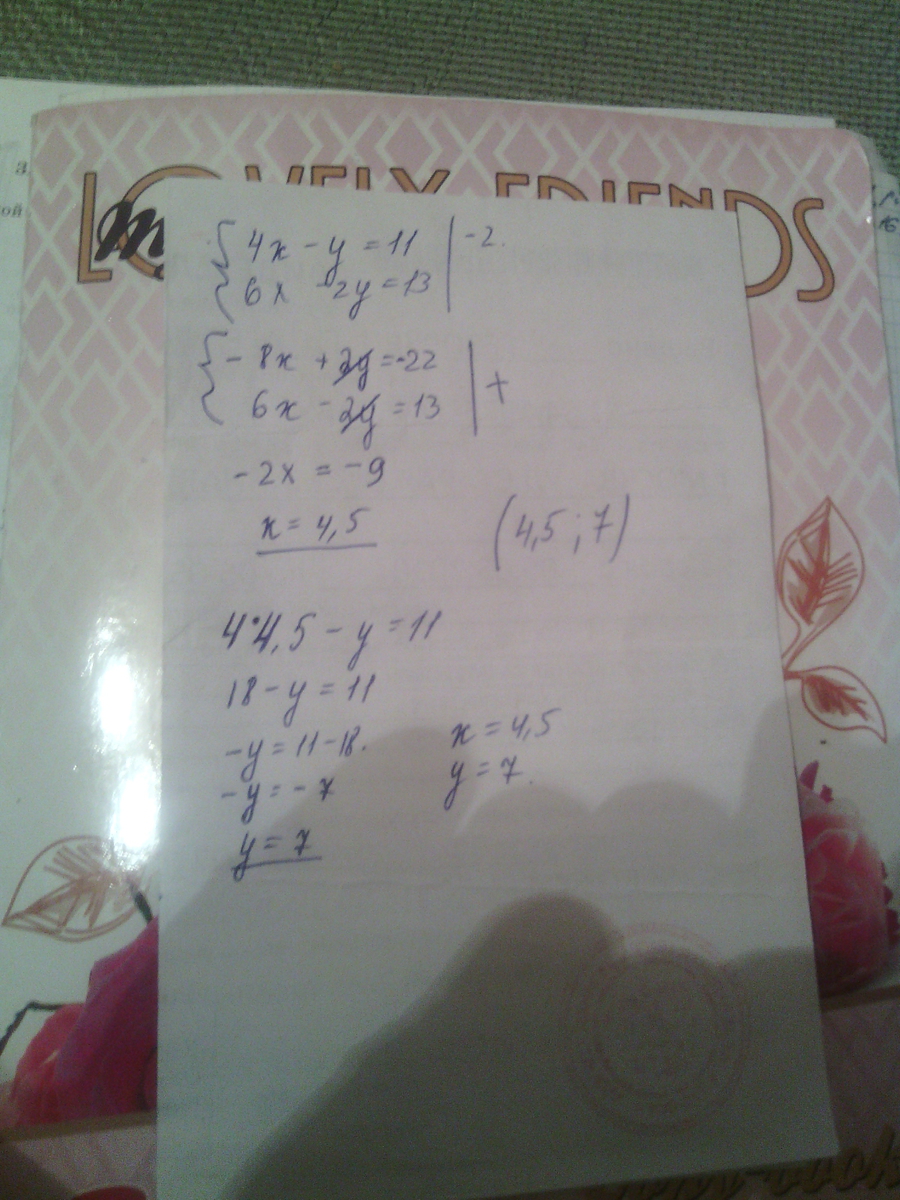 LOVELY FRIENDS
{ 4x - y = 11 | -2.
6x - 2y = 13
{ - 8x + 2y = -22 | +
6x - 2y = 13
- 2x = - 9
x = 4,5
(4,5 ; 7)
4·4,5 - y = 11
18 - y = 11
-y = 11 - 18.
-y = - 7
y = 7
x = 4,5
y = 7.